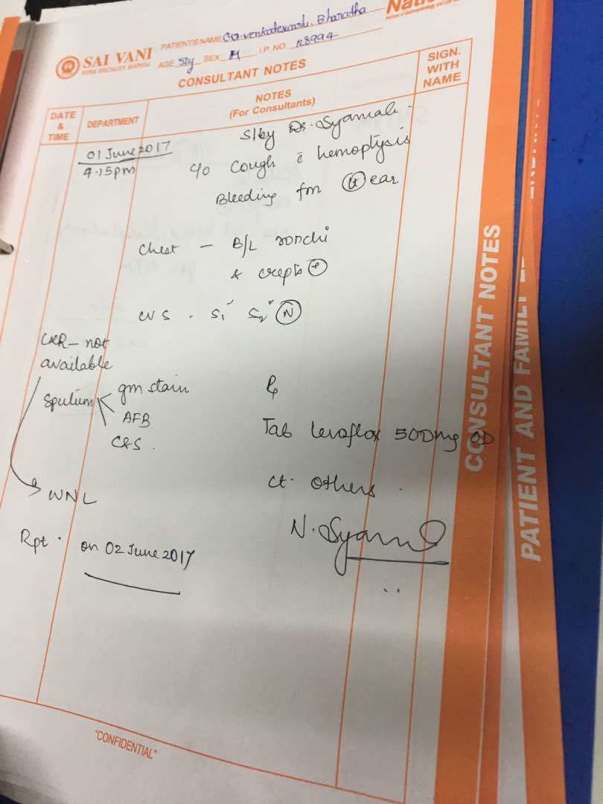 SAI VANI
SUPER SPECIALITY HOSPITAL
PATIENT NAME
Bharatha
AGE SEX M I.P. NO.
CONSULTANT NOTES
DATE & TIME
DEPARTMENT
NOTES
(For Consultants)
SIGN. WITH NAME
01 June 2017
4.15pm
S/by Dr. Syamali.
c/o Cough c̄ hemoptysis
Bleeding fm ear
Chest — B/L ronchi
& crepts (+)
CVS . S₁ S₂ (N)
CXR — not
available
Sputum
gm stain
AFB
C&S.
Rx
Tab levoflox 500mg OD
Ct. Others.
WNL
Rpt. on 02 June 2017
N. Syamal
"CONFIDENTIAL"
CONSULTANT NOTES
PATIENT AND FAMILY